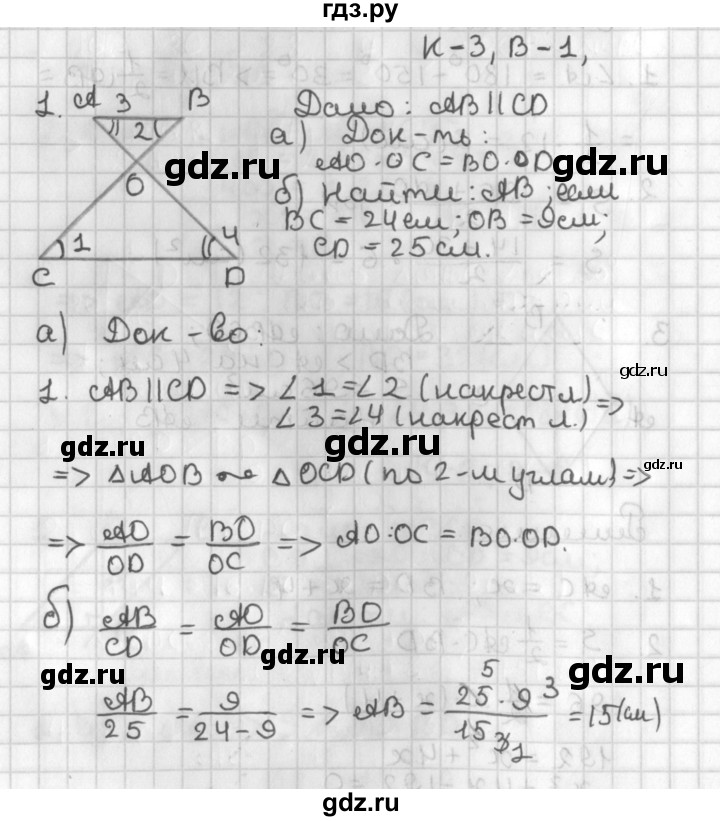 гдз.ру
К-3, В-1,
1. A 3 B
2
O
1 4
C D
Дано: AB||CD
а) Док-ть:
AO·OC=BO·OD
б) Найти: AB, если
BC=24см; OB=9см;
CD=25см.
gdz.ru gdz.ru
а) Док-во:
gdz.ru
1. AB||CD => ∠1=∠2 (накрест л.)
∠3=∠4 (накрест л.) =>
gdz.ru gdz.ru
=> △AOB ~ △OCD (по 2-м углам) =>
=> AO/OD = BO/OC => AO:OC = BO·OD.
gdz.ru gdz.ru
б) AB/CD = AO/OD = BO/OC
gdz.ru gdz.ru gdz.ru
AB/25 = 9/(24-9) => AB = (25 5 · 9 3)/(15 3 1) = 15(см)
gdz.ru